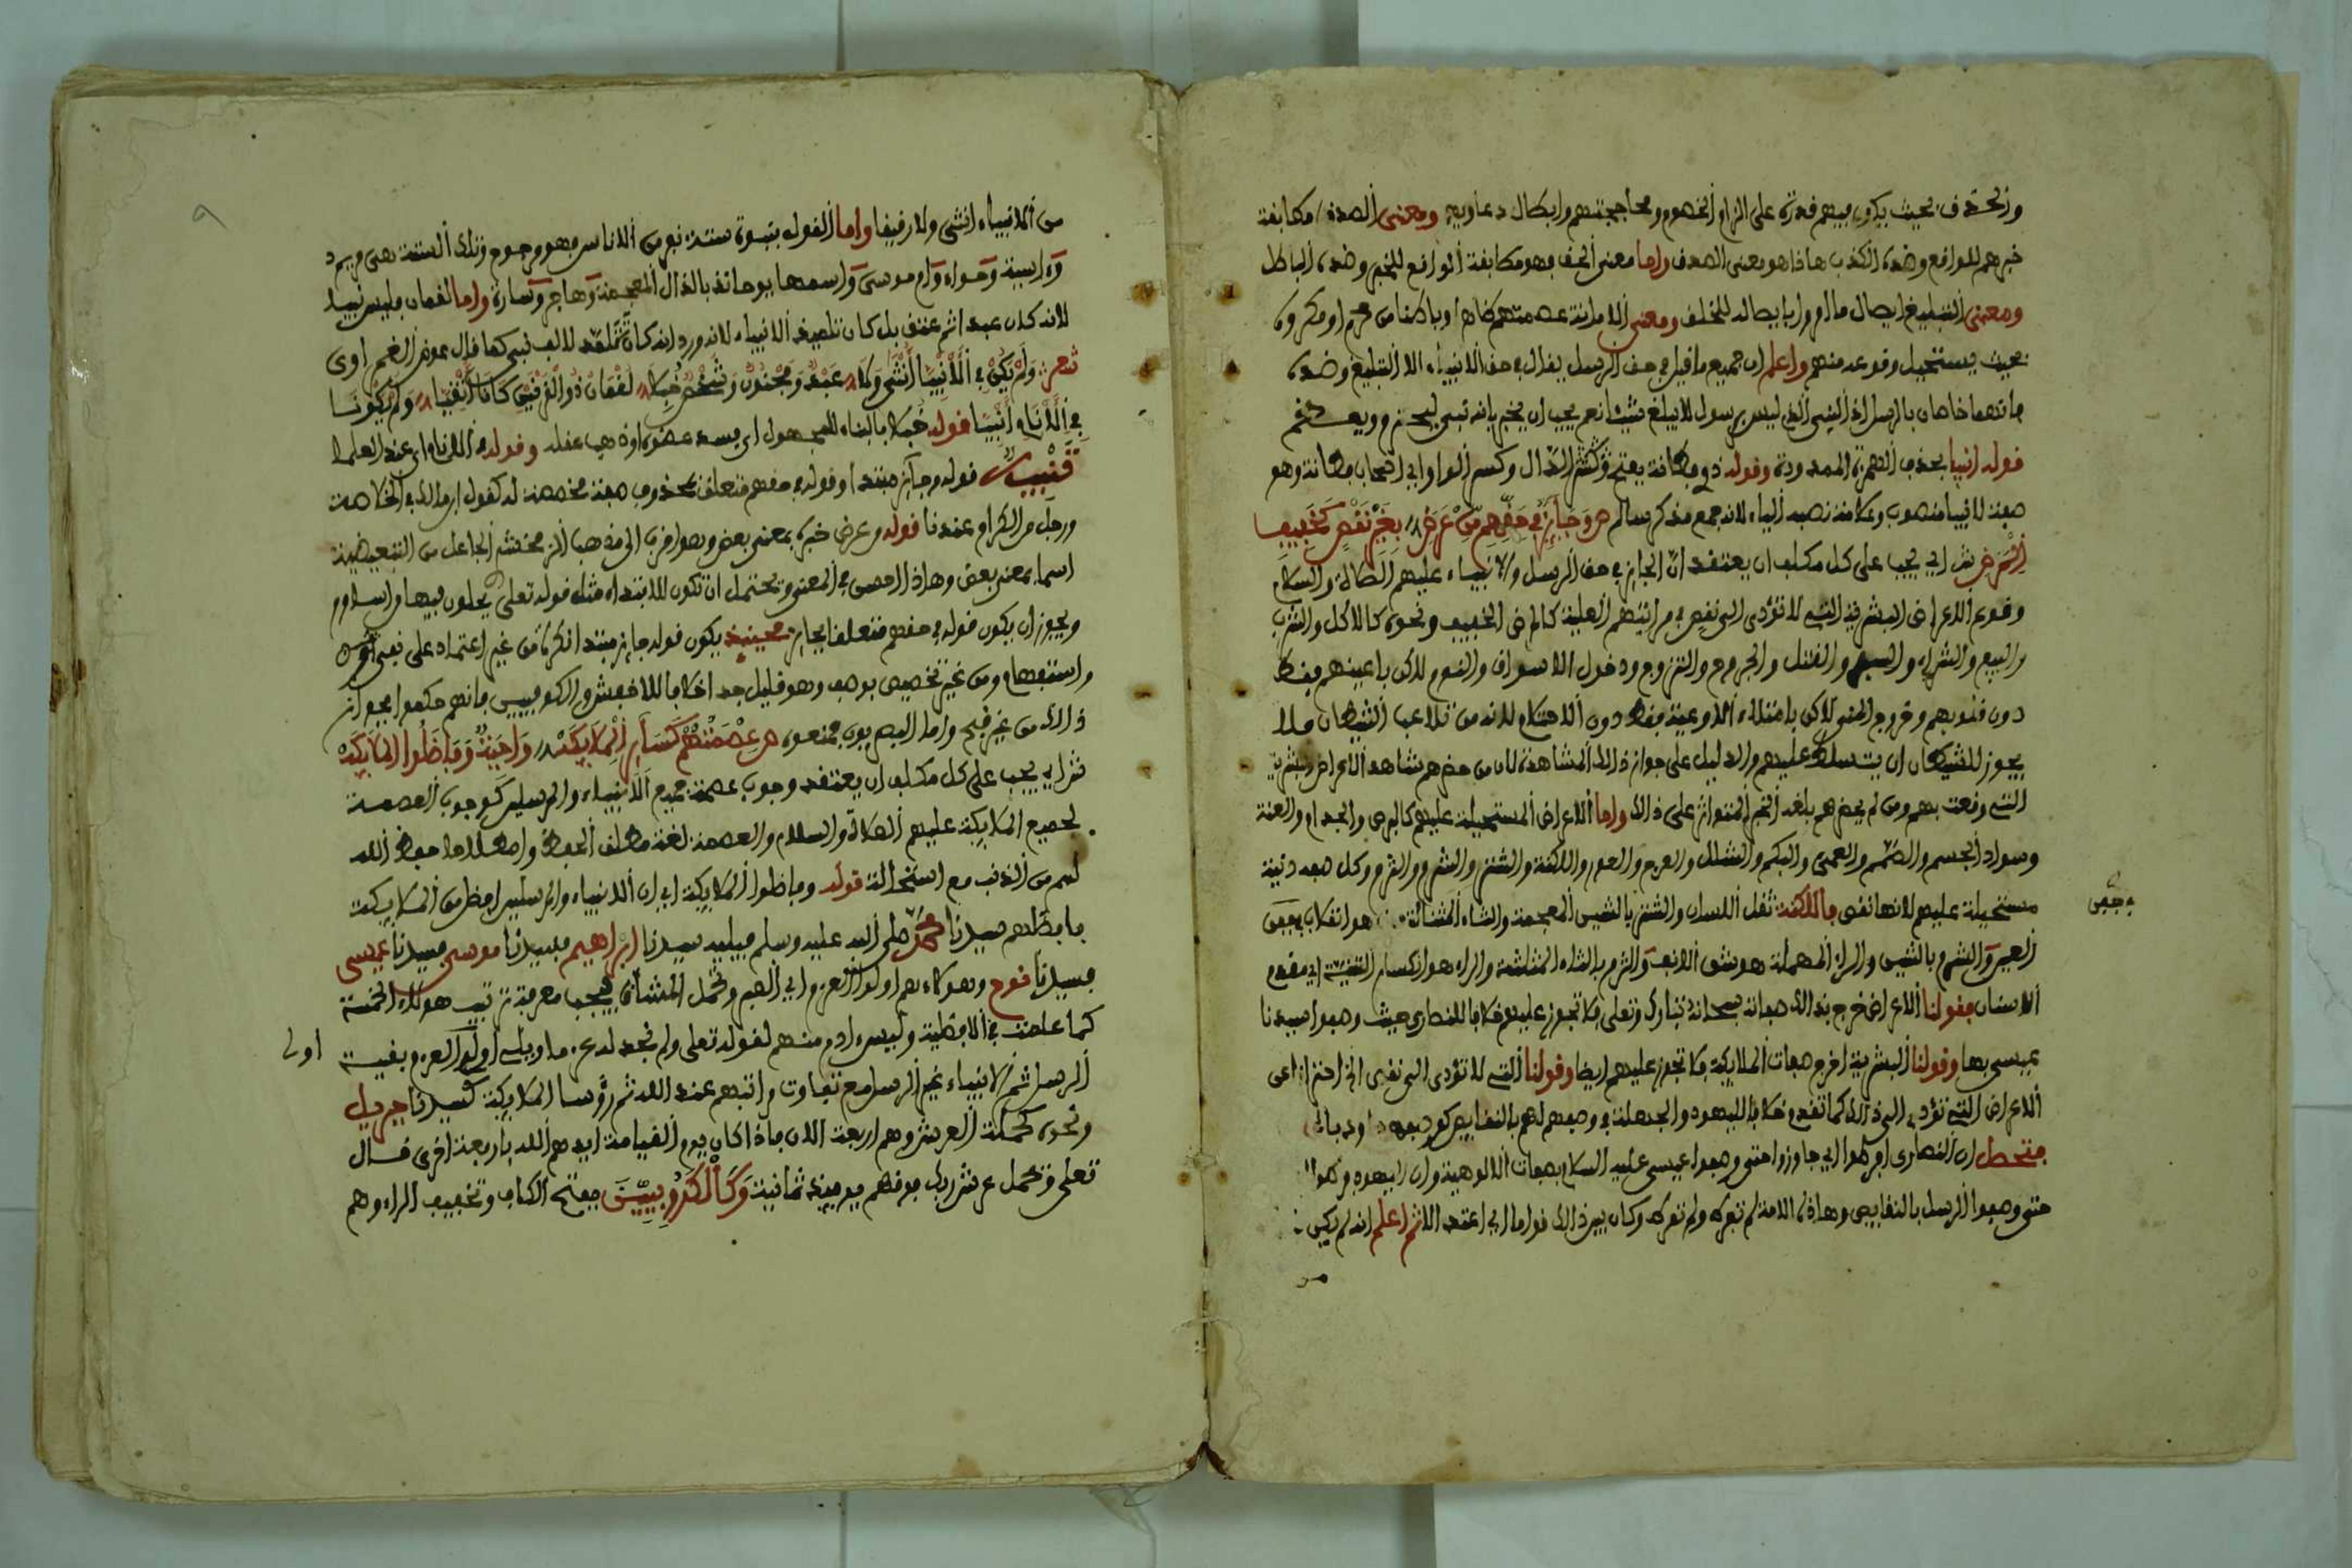 والحذق بحيث يكون فيهم قدرة على الزام الخصوم ومحاججتهم وابطال دعاويهم ومعنى الصدق مطابقة
خبرهم للواقع وضده الكذب هاذا هو معنى الصدق واما معنى الحق فهو مطابقة الواقع للخبر وضده الباطل
ومعنى التبليغ ايصال ما امروا بايصاله للخلق ومعنى الامانة عصمتهم ظاهرا وباطنا من محرم او مكروه
بحيث يستحيل وقوعه منهم واعلم ان جميع ما قيل في حق الرسل يقال في حق الانبياء الا التبليغ وضده
فانهما خاصان بالرسل اذ النبي الذي ليس برسول لا يبلغ شيئا نعم يجب ان يخبر بانه نبي ليحترم ويعظم
قوله انبيا بحذف الهمزة الممدودة وقوله ذوي فطانة بفتح الذال وكسر الواو اي اصحاب فطانة وهو
صفة لانبيا منصوب وعلامة نصبه الياء لانه جمع مذكر سالم ص وجائز في حقهم من عرض بغير نقص كخفيف
المرض ش اي يجب على كل مكلف ان يعتقد ان الجايز في حق الرسل والانبياء عليهم الصلاة والسلام
وقوع الاعراض البشرية التي لا تؤدي الى نقص في مراتبهم العلية كالمرض الخفيف ونحوه كالاكل والشرب
والبيع والشراء والسفر والقتل والجروح والتزوج ودخول الاسواق والنوم لاكن باعينهم فقط
دون قلوبهم وخروج المني لاكن بامتلاء الاوعية فقط دون الاحتلام لانه من تلاعب الشيطان فلا
يجوز للشيطان ان يتسلط عليهم والدليل على جواز ذالك المشاهدة لان من حضرهم شاهد الاعراض البشرية
التي وقعت بهم ومن لم يحضرهم بلغه الخبر المتواتر على ذالك واما الاعراض المستحيلة عليهم كالبرص والجذام والعنة
وسواد الجسم والصمم والعمى والبكم والشلل والعرج والعور واللكنة والشتر والشرم والثرم وكل صفة دنية
مستحيلة عليهم لانها نقص فاللكنة ثقل اللسان والشتر بالشين المعجمة والتاء المثناة هو انقلاب جفن
جفن
العين والشرم بالشين والراء المهملة هو شق الانف والثرم بالثاء المثلثة والراء هو انكسار الثنية اي مقدم
الاسنان فقولنا الاعراض خرج بذالك صفاته سبحانه تبارك وتعلى فلا تجوز عليهم خلافا للنصارى حيث وصفوا سيدنا
عيسى بها وقولنا البشرية اخرج صفات الملايكة فلا تجوز عليهم ايضا وقولنا التي لا تؤدي الى نقص الخ احترازا عن
الاعراض التي تؤدي الى ذالك كما تقدم خلافا لليهود والجهلة في وصفهم لهم بالنقايص
فتحصل ان النصارى افرطوا اي جاوزوا حتى وصفوا عيسى عليه السلام بصفات الالوهية وان اليهود فرطوا
حتى وصفوا الرسل بالنقايص وهاذه الامة لم تفرط ولم تفرط وكان بين ذالك قواما اي اعتدالا ثم اعلم انه لم يكن
من
من الانبياء انثى ولا رقيقا واما القول بنبوة ستة نسوة من الاناس فهو مرجوح وتلك الستة هي مريم
وءاسية وحواء وام موسى واسمها يوحانذ بالذال المعجمة وهاجر وسارة واما لقمان فليس نبيا
لانه كان عبدا ثم عتق بل كان تلميذ الانبياء لانه ورد انه كان تتلمذ لالف نبي كما قال عوض الغمراوي
شعر ولم يكن في الانبيا انثى ولا عبد ومجنون وشخص خبلا لقمان ذو القرنين كانا اتقيا ولم يكونا
في الاناه انبيا قوله خبلا بالبناء للمجهول اي فسد عضوه او ذهب عقله وقوله في الاناه اي عند العلما
تنبيه قوله وجايز مبتدا وقوله في حقهم متعلق بمحذوف صفة مخصصة له كقول ابن مالك في الخلاصة
ورجل من الكرام عندنا قوله من عرض خبره بمعنى بعض وهو اقرب الى مذهب الزمخشري الجاعل من التبعيضية
اسما بمعنى بعض وهاذا احسن في المعنى ويحتمل ان تكون للابتداء مثل قوله تعلى يحلون فيها من اساور
ويجوز ان يكون قوله في حقهم متعلقا بجايز فحينئذ يكون قوله جايز مبتدا نكرة من غير اعتماد على نفي او
واستفهام ومن غير تخصيص بوصف وهو قليل جدا خلافا للاخفش والكوفيين فانهم حكموا بجواز
ذالك من غير قبح واما البصريون فمنعوه ص عصمتهم كسائر الملايكة واجبة وفاضلوا الملايكة
ش اي يجب على كل مكلف ان يعتقد وجوب عصمة جميع الانبياء والمرسلين كوجوب العصمة
لجميع الملايكة عليهم الصلاة والسلام والعصمة لغة مطلق الحفظ واصطلاحا حفظ الله
لهم من الذنب مع استحالة قوله وفاضلوا الملايكة اي ان الانبياء والمرسلين افضل من الملايكة
فافضلهم سيدنا محمد صلى الله عليه وسلم فيليه سيدنا ابراهيم فسيدنا موسى فسيدنا عيسى
فسيدنا نوح وهؤلاء هم اولوا العزم اي الصبر وتحمل المشاق فيجب معرفة ترتيب هؤلاء الخمسة
كما علمت في الافضلية وليس ءادم منهم لقوله تعلى ولم نجد له عزما ويلي اولوا العزم بقية
اولى
الرسل ثم الانبياء غير الرسل مع تفاوت مراتبهم عند الله ثم رؤسا الملايكة كسيدنا جبريل
ونحوه كحملة العرش وهم اربعة الان فاذا كان يوم القيامة ايدهم الله باربعة اخرى قال
تعلى ويحمل عرش ربك فوقهم يومئذ ثمانية وكالكروبيين بفتح الكاف وتخفيف الراء وهم